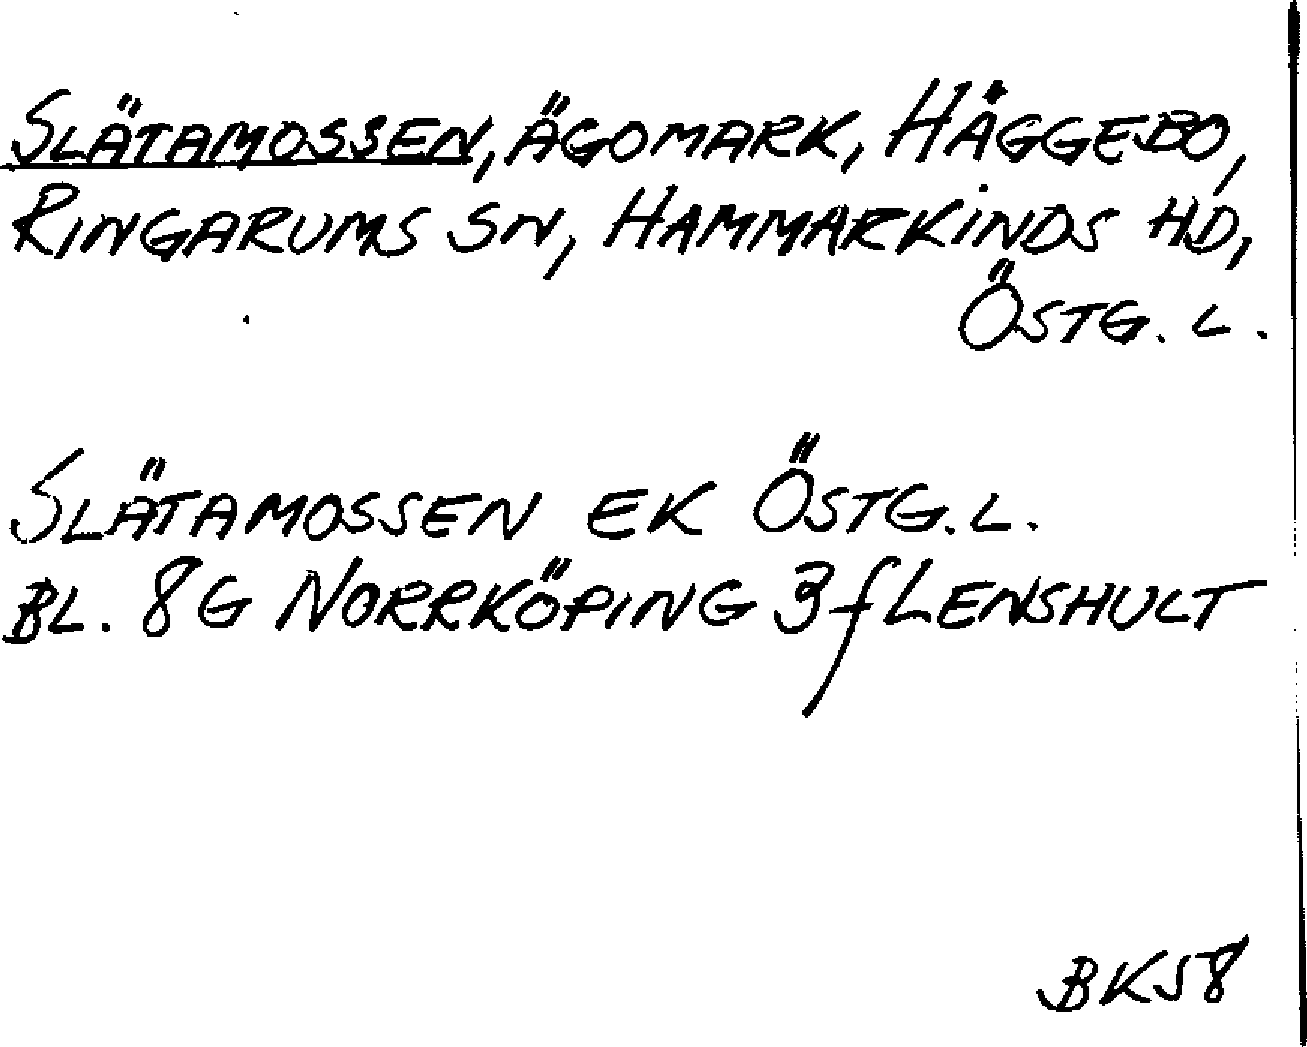 SLÄTAMOSSEN, ÄGOMARK, HÅGGEBO,
RINGARUMS SN, HAMMARKINDS HD,
ÖSTG. L.
SLÄTAMOSSEN EK ÖSTG. L.
BL. 8G NORRKÖPING 3f LENSHULT
BK58